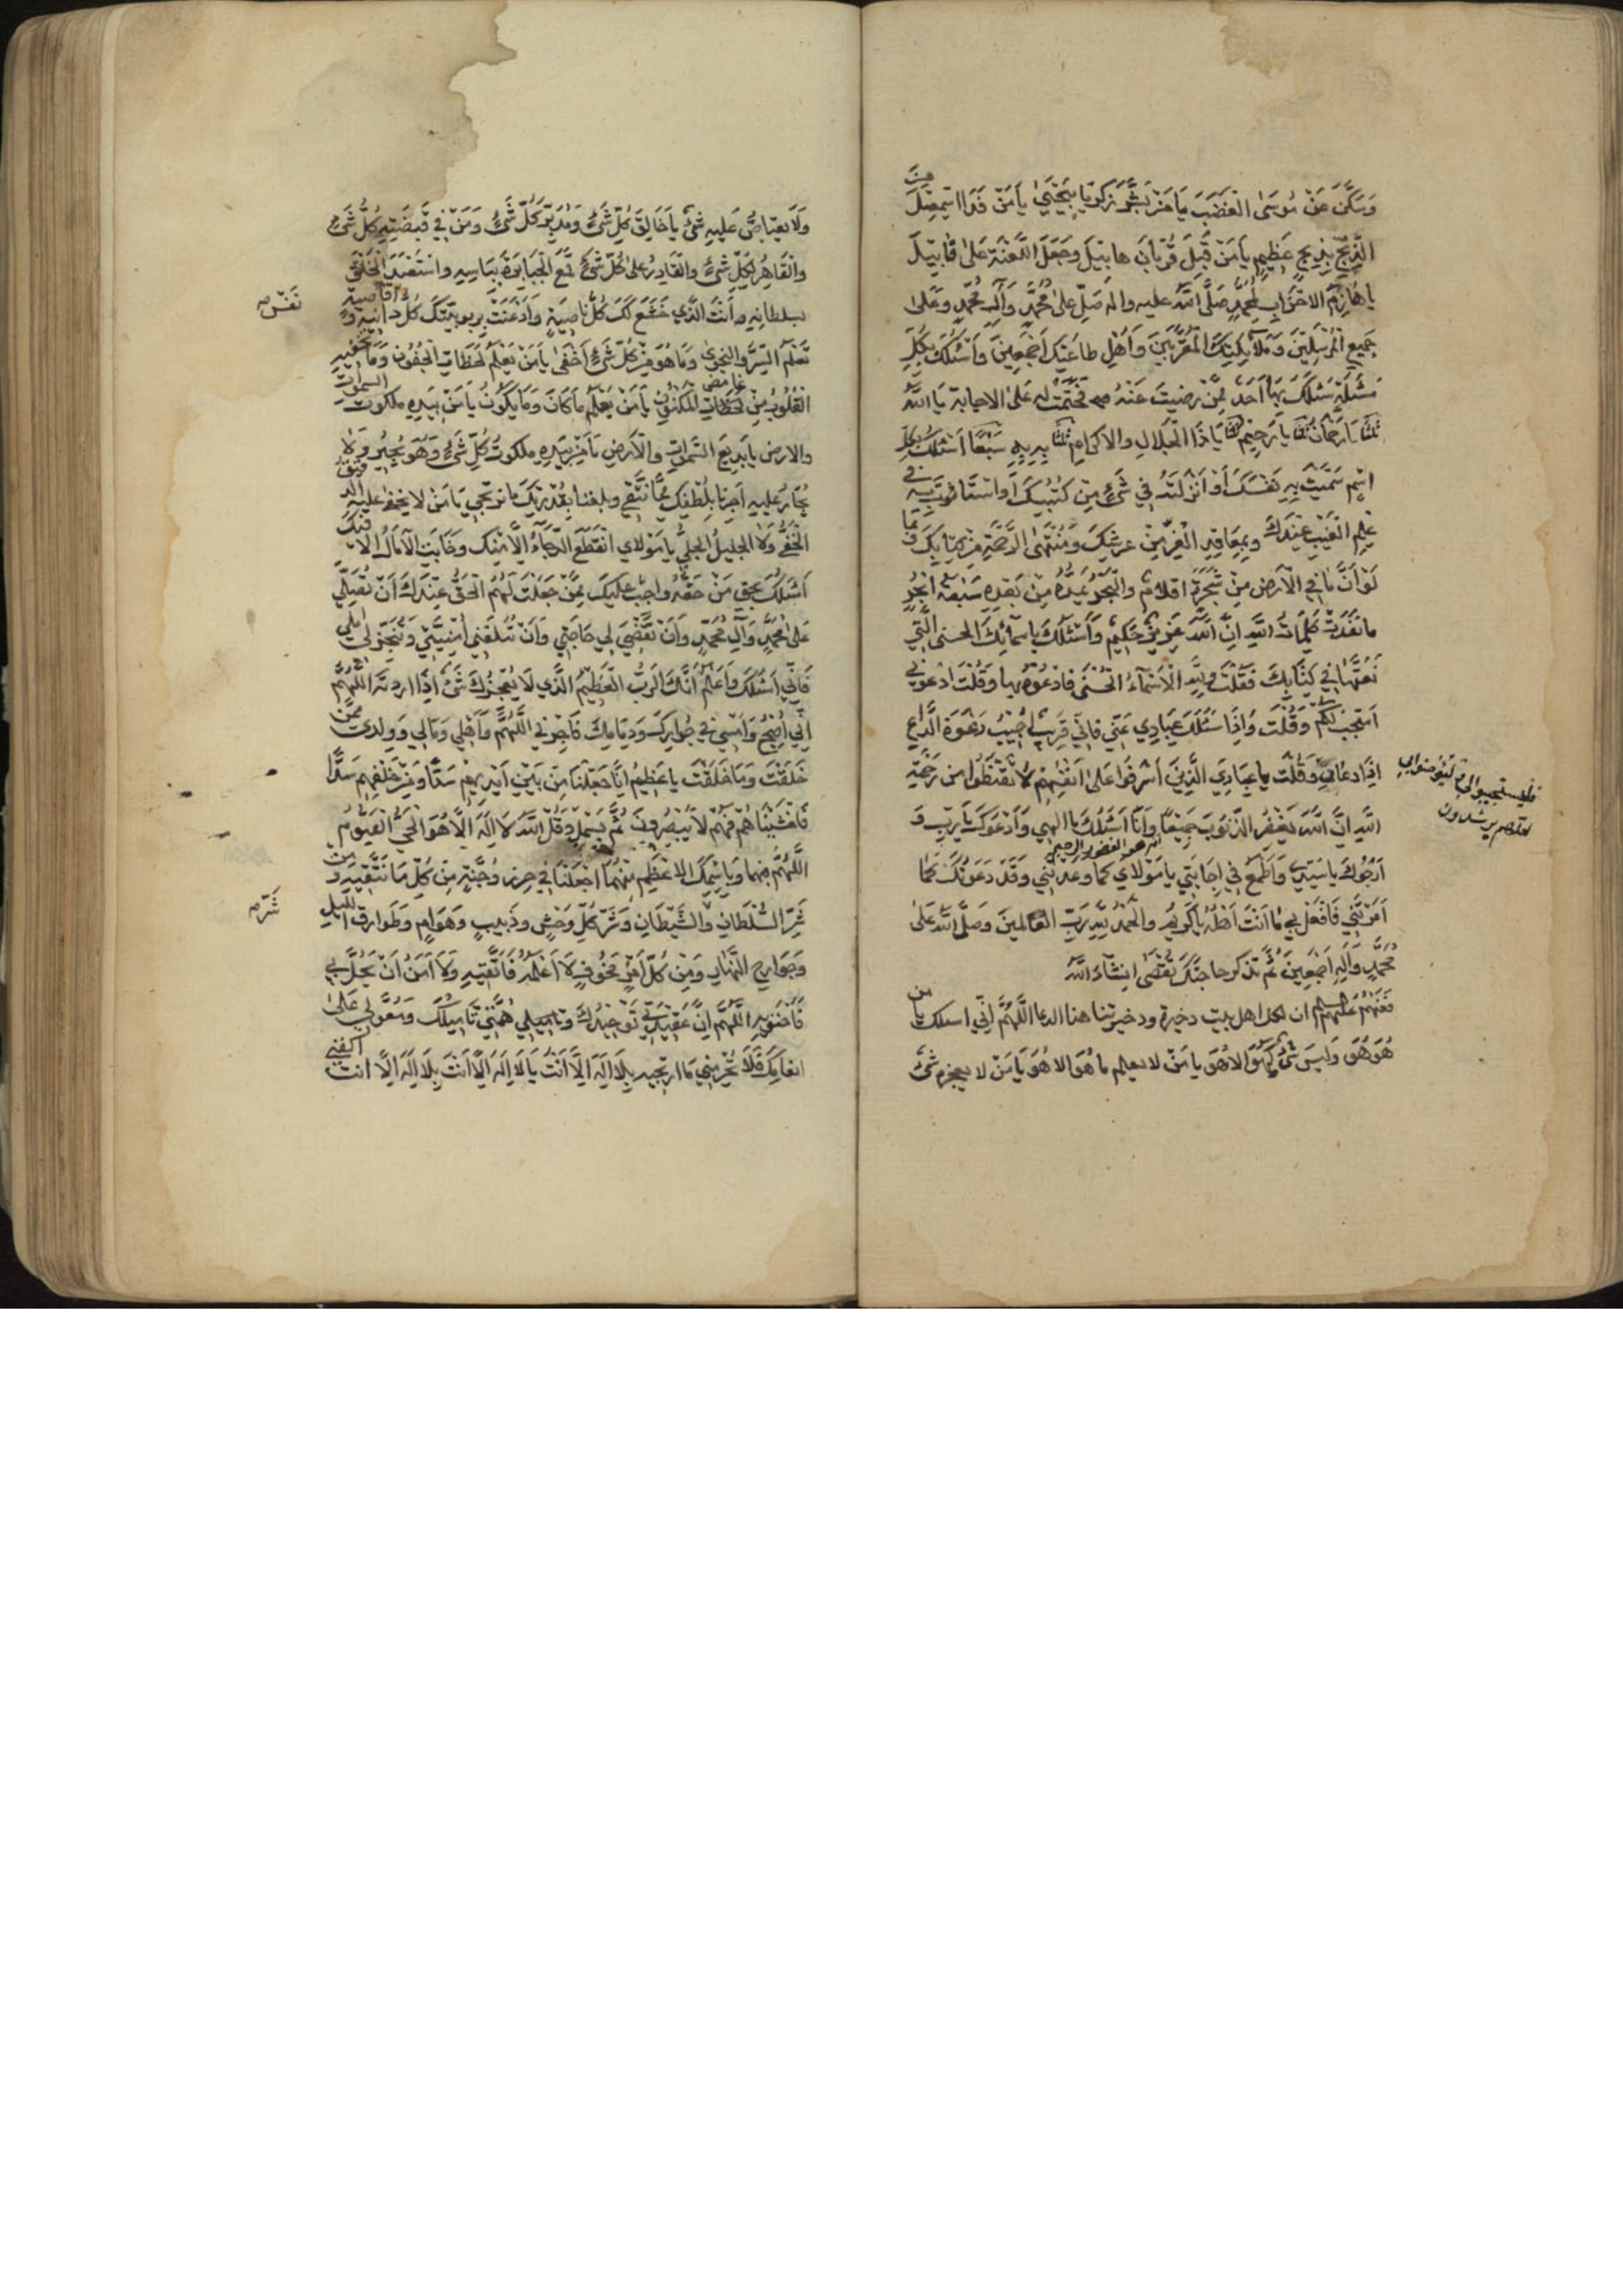 وَسَكَّنَ عَنْ مُوسَى الغَضَبَ يَا مَنْ بَشَّرَ زَكَرِيَّا بِيَحْيَى يَا مَنْ فَدَا اسْمٰعِيلَ مِنَ
الذَّبْحِ بِذِبْحٍ عَظِيمٍ يَا مَنْ قَبِلَ قُرْبَانَ هَابِيلَ وَجَعَلَ اللَّعْنَةَ عَلَى قَابِيلَ
يا هَازِمَ الاحْزَابِ لِمُحَمَّدٍ صَلَّى اللهُ عليه واله صَلِّ عَلَى مُحَمَّدٍ وَآلِ مُحَمَّدٍ وَعَلى
جَمِيعِ المُرْسَلِينَ وَمَلَائِكَتِكَ المُقَرَّبِينَ وَأَهْلِ طاعَتِكَ أَجْمَعِينَ وَأَسْئَلُكَ بِكُلِّ
مَسْئَلَةٍ سَئَلَكَ بِهَا أَحَدٌ مِمَّنْ رَضِيتَ عَنْهُ فَحَتَمْتَ له عَلَى الاجابة يَا اللهُ
ثلثا يَا رَحْمَانُ ثلثا يا رَحِيمُ ثلثا يَا ذَا الجَلالِ والاكرامِ ثلثا بِهِ بِهِ سَبْعًا أَسْئَلُكَ بِكُلِّ
اسْمٍ سَمَّيْتَ بِهِ نَفْسَكَ أَوْ أَنْزَلْتَهُ فِي شَيْءٍ مِنْ كُتُبِكَ أَوِ اسْتَأْثَرْتَ بِهِ فِي
عِلْمِ الغَيْبِ عِنْدَكَ وَبِمَعَاقِدِ العِزِّ مِنْ عَرْشِكَ وَمُنْتَهَى الرَّحْمَةِ مِنْ كِتَابِكَ وَبِمَا
لَوْ أَنَّ مَا فِي الأَرْضِ مِنْ شَجَرَةٍ اقلامٌ والبَحْرُ يَمُدُّهُ مِنْ بَعْدِهِ سَبْعَةُ أَبْحُرٍ
مَا نَفِدَتْ كَلِمَاتُ اللهِ إِنَّ اللهَ عَزِيزٌ حَكِيمٌ وَأَسْئَلُكَ بِاسمائِكَ الحسنى الَّتِي
نَعَتَّهَا فِي كِتَابِكَ فَقُلْتَ وَلِلّهِ الأَسْمَاءُ الحُسْنَى فَادْعُوهُ بِهَا وَقُلْتَ ادْعُونِي
أَسْتَجِبْ لَكُمْ وَقُلْتَ وَإِذَا سَئَلَكَ عِبَادِي عَنِّي فَإِنِّي قَرِيبٌ أُجِيبُ دَعْوَةَ الدَّاعِ
إِذَا دَعَانِ وَقُلْتَ يا عِبَادِيَ الَّذِينَ أَسْرَفُوا عَلَى أَنْفُسِهِمْ لَا تَقْنَطُوا من رَحْمَةِ
فليستجيبوا لي وليؤمنوا بي
لعلهم يرشدون
اللهِ إِنَّ اللهَ يَغْفِرُ الذُّنُوبَ جَمِيعًا وَأَنَا أَسْئَلُكَ يا إلهي وَأَدْعُوكَ يَا رَبِّ وَ
انه هو الغفور الرحيم
أَرْجُوكَ يا سَيِّدِي وَأَطْمَعُ فِي إِجَابَتِي يا مَوْلَاي كَما وَعَدْتَنِي وَقَدْ دَعَوْتُكَ كَمَا
أَمَرْتَنِي فَافْعَلْ بِي مَا أَنْتَ أَهْلُهُ يَا كَرِيمُ والحَمْدُ لِلّهِ رَبِّ العَالَمِينَ وَصَلَّى اللهُ عَلَى
مُحَمَّدٍ وَآلِهِ أَجْمَعِينَ ثُمَّ تذكر حاجَتَكَ تُقْضَى إنشاء اللهُ
عَنْهُمْ عَلَيْهِمُ السلام ان لكل اهل بيت ذخيرة وذخيرتنا هذا الدعا اللَّهُمَّ إِنِّي اسئلك يا من
هُوَ هُوَ وَلَيْسَ شَيْءٌ كَهُوَ الا هُوَ يا مَنْ لا يعلم ما هُوَ الا هُوَ يَا مَنْ لا يعجزه شَيْءٌ
وَلَا يعتاصُ عَلَيهِ شَيْءٌ يا خَالِقَ كُلِّ شَيْءٍ وَمُدَبِّرَ كُلِّ شَيْءٍ وَمَنْ فِي قَبْضَتِهِ كُلُّ شَيْءٍ
وَالقَاهِرُ لِكُلِّ شَيْءٍ وَالقَادِرُ على كُلِّ شَيْءٍ قَمَعَ الجَبَابِرَةَ بِبَأسِهِ واسْتَعْبَدَ الخَلْقَ
بسلطانه أَنْتَ الَّذِي خَشَعَ لَكَ كُلُّ نَاصِيَةٍ وَأَذْعَنَتْ بِرُبُوبِيَّتِكَ كُلُّ دانيه وقاصية
نَفْس
تَعْلَمُ السِّرَّ وَالنجوى وَمَا هُوَ مِنْ كُلِّ شَيْءٍ أَخْفَى يَا مَنْ يَعْلَمُ لَحَظَاتِ الجُفُونِ وَمَا تخفيه
القُلُوبُ مِنْ لَحَظَاتِ المَكْنُونِ يَا مَنْ يَعْلَمُ مَا كَانَ وَمَا يَكُونُ يَا مَنْ بِيَدِهِ ملكوت السموات
غامض
والارض يا بَدِيعَ السَّموَاتِ وَالأَرْضِ يَا مَنْ بِيَدِهِ ملكوتُ كُلِّ شَيْءٍ وَهُوَ يُجِيرُ وَلا
يُجَارُ عَلَيهِ أَجِرْنَا بِلُطْفِكَ مِمَّا نَتَّقِي وبلغنا بِقُدْرَتِكَ مَا نَرْتَجِي يَا مَنْ لا يَخْفَى عليه الدقيق
الخَفِيُّ وَلا الجَلِيلُ الجَلِيُّ يا مَوْلاي انْقَطَعَ الرَّجَاءُ إِلَّا مِنْكَ وَخَابَتِ الآمَالُ إلا فيك
أَسْئَلُكَ بِحَقِّ مَنْ حَقُّهُ وَاجِبٌ عَلَيْكَ مِمَّنْ جَعَلْتَ لَهُمُ الحَقَّ عِنْدَكَ أَنْ تُصَلِّيَ
عَلى مُحَمَّدٍ وَآلِ مُحَمَّدٍ وَأَنْ تَقْضِيَ لِي حَاجَتِي وَأَنْ تُبَلِّغَنِي أُمْنِيَّتِي وَتُنْجِزَ لِي أملي
فَإِنِّي أَسْئَلُكَ وَأَعْلَمُ أَنَّكَ الرَّبُّ العَظِيمُ الَّذِي لَا يُعْجِزُكَ شَيْءٌ إِذَا اردته اللَّهُمَّ
إِنِّي أُصْبِحُ وَأُمْسِي فِي جِوَارِكَ وَذِمَامِكَ فَأَجِرْنِي اللَّهُمَّ وَأَهْلِي وَمَالِي وَوَلَدِي مِمَّن
خَلَقْتَ وَمَا خَلَقْتَ يا عَظِيمُ إِنَّا جَعَلْنَا مِنْ بَيْنِ أَيْدِيهِمْ سَدًّا وَمِنْ خَلْفِهِمْ سَدًّا
فَأَغْشَيْنَاهُمْ فَهُمْ لَا يُبْصِرُونَ ثُمَّ بَسْمِلْ وَقُلْ اللهُ لَا إِلَهَ إِلَّا هُوَ الحَيُّ القَيُّومُ
اللَّهُمَّ بِهَا وَبِاسْمِكَ الاعْظَمِ مِنْهُمَا اجْعَلْنَا فِي حِرْزٍ وَجُنَّةٍ مِنْ كُلِّ مَا نَتَّقِيهِ وَمِنْ
شَرِّ السُّلْطَانِ وَالشَّيْطَانِ وَشَرِّ كُلِّ وَحْشٍ وَدَبِيبٍ وَهَوَامٍ وَطَوَارِقِ الليل
شَرّ
وَجَوَارِحِ النَّهَارِ وَمِنْ كُلِّ أَمْرٍ مَخُوفٍ لَا أَعْلَمُهُ فَأَتَّقِيهِ وَلَا آمَنُ أَنْ يَحُلَّ بِي
اللَّهُمَّ إِنَّ عَقِيدَتِي تَوْحِيدُكَ وَهِمَّتِي تَأْمِيلُكَ وَمُعَوَّلِي عَلَى
إنعامك فَلَا تَحْرِمْنِي مَا ارتجيه بِلَا إِلَهَ إِلَّا أَنْتَ يَا لَا إِلَهَ إِلَّا أَنْتَ بِلَا إِلَهَ إِلَّا أنت اكفني